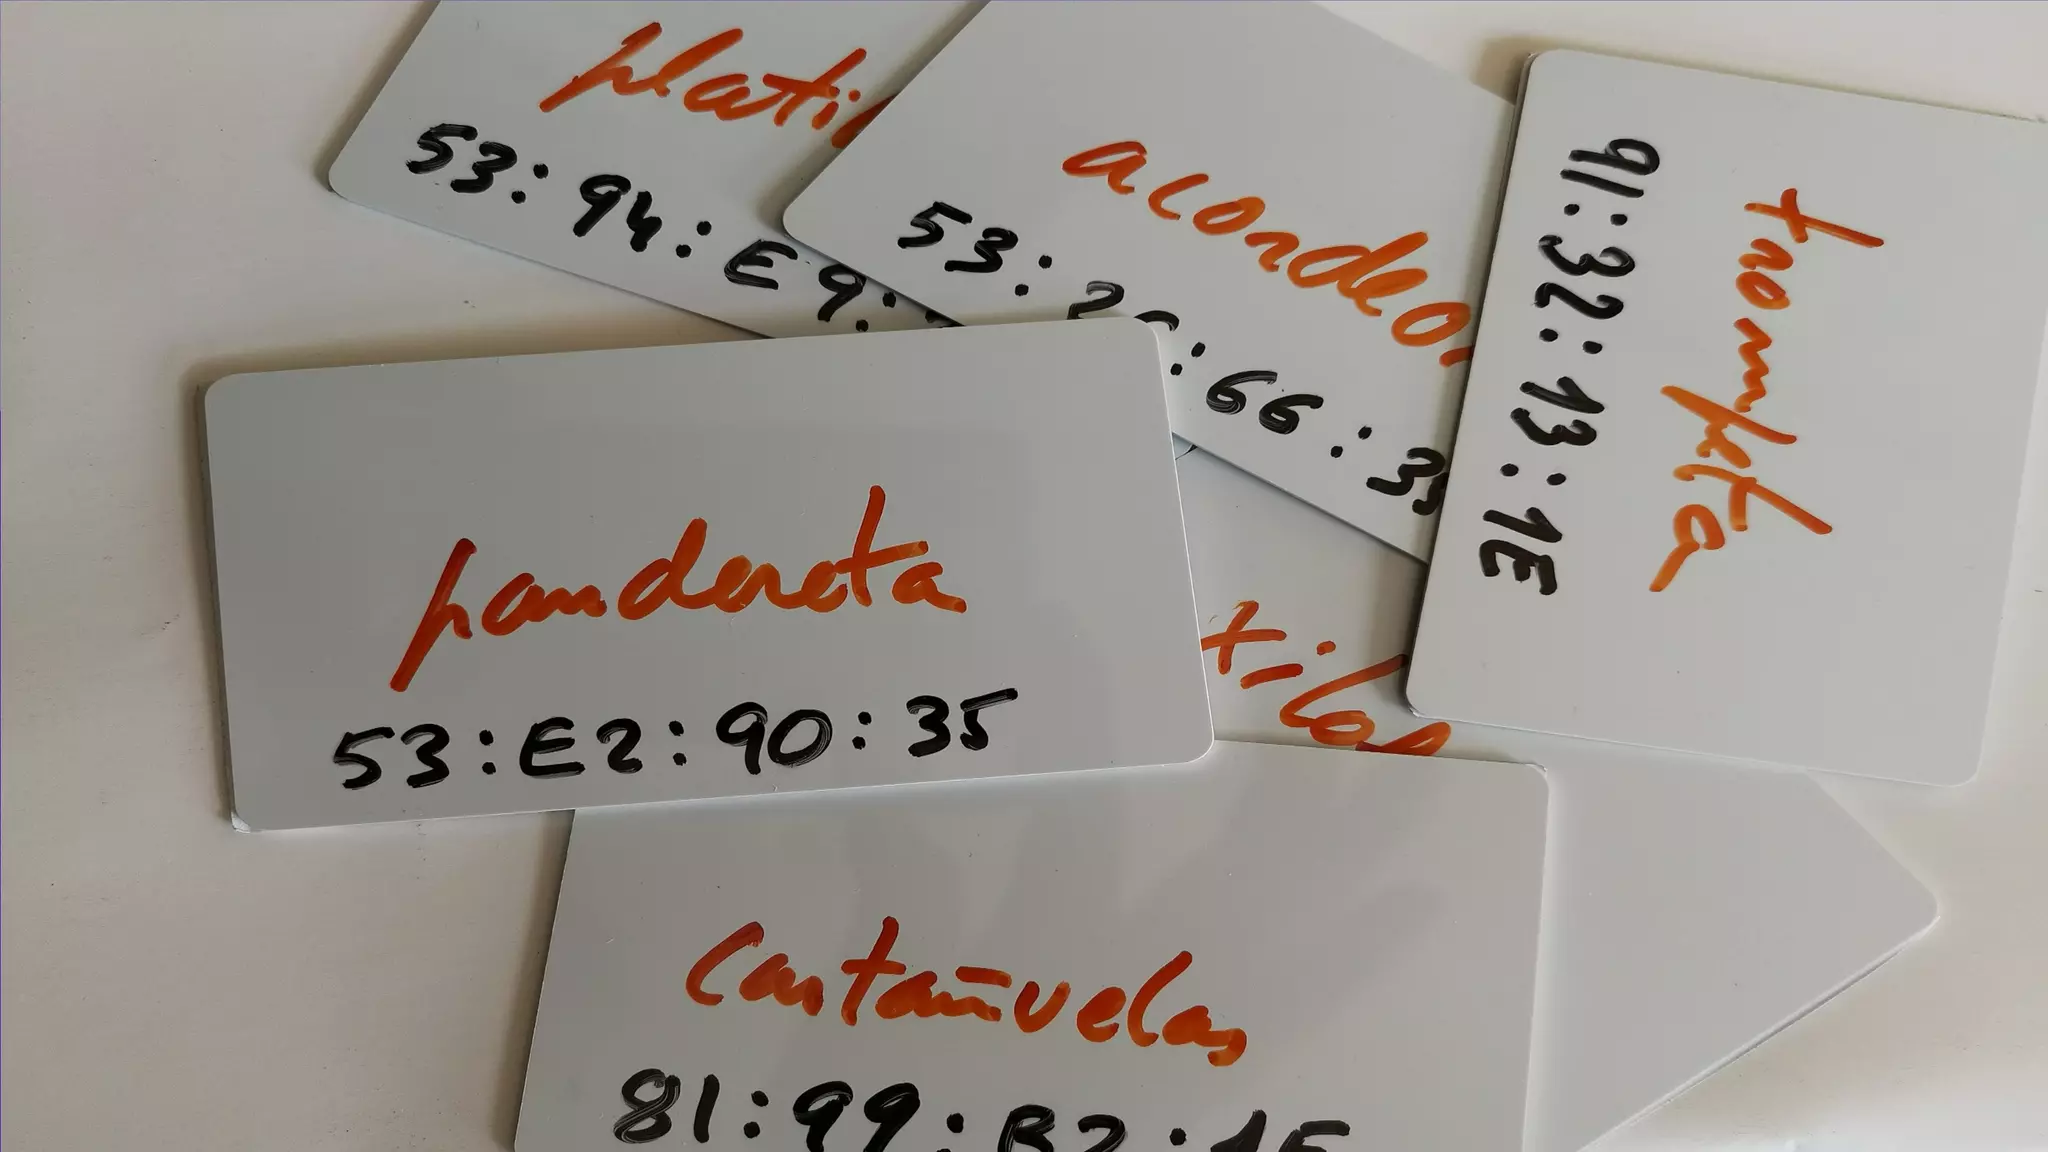 plati
53:94:E9:
acordeo
53: :66:35
trompeta
91:32:13:1E
pandereta
53:E2:90:35
tilof
castañuelas
81:99:B2:1E